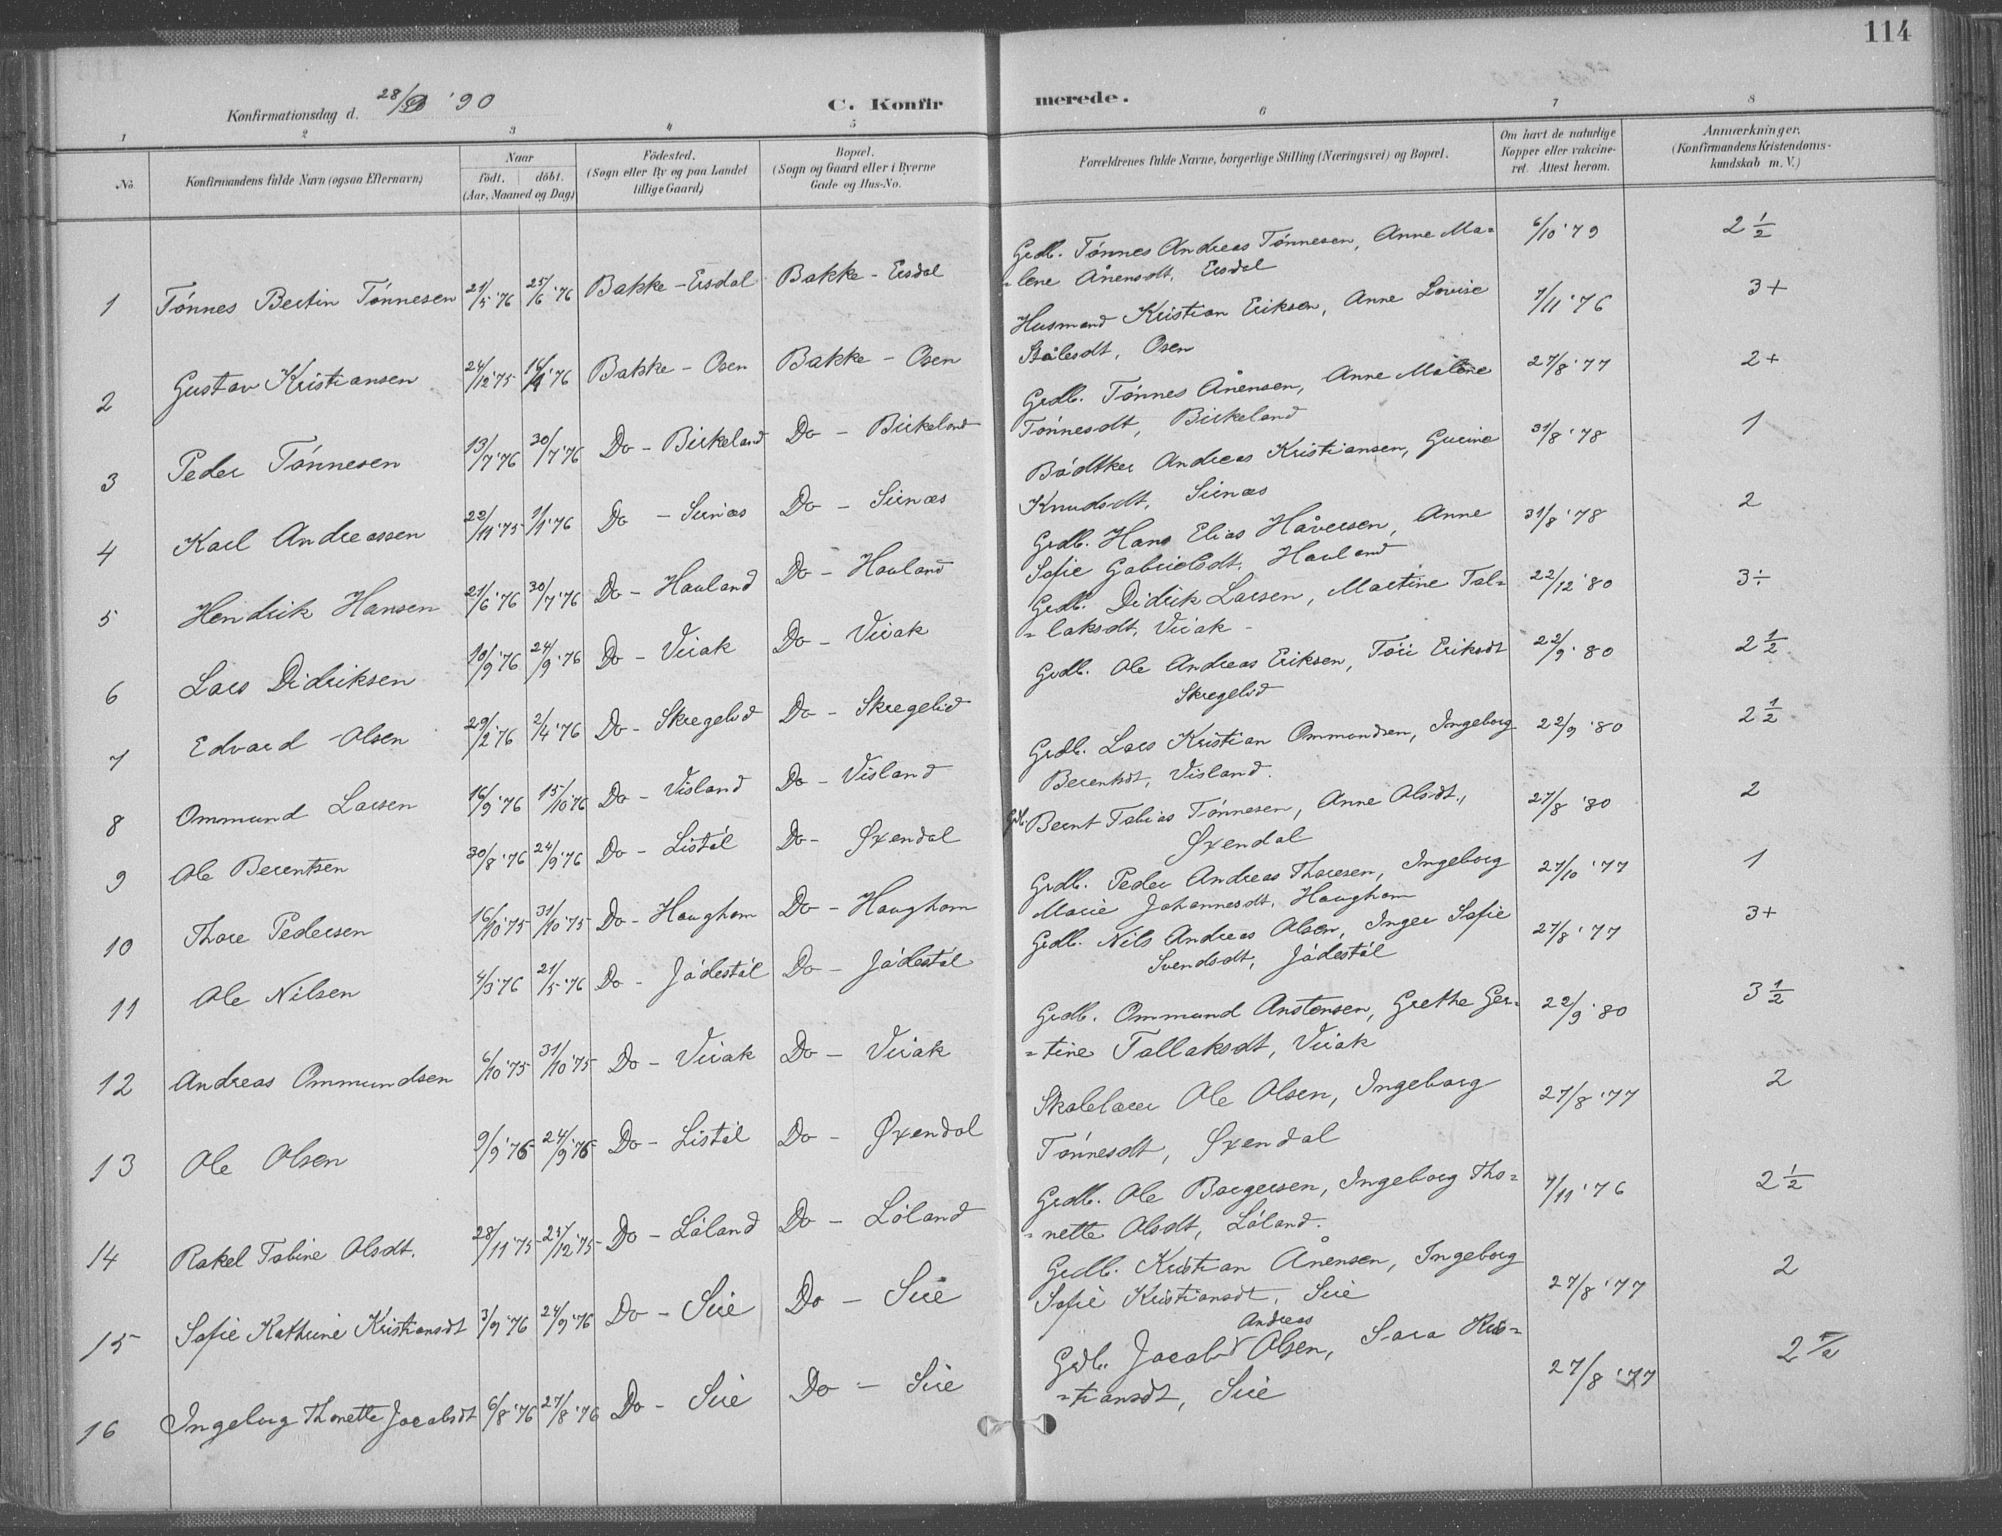 114
Konfirmationsdag d. 28/9 '90
C. Konfirmerede.
1 2 3 4 5 6 7 8
No.
Konfirmandens fulde Navn (ogsaa Efternavn)
Naar
födt. döbt.
(Aar, Maaned og Dag)
Födested.
(Sogn eller By og paa Landet
tillige Gaard)
Bopæl.
(Sogn og Gaard eller i Byerne
Gade og Hus-No.
Forældrenes fulde Navne, borgerlige Stilling (Næringsvei) og Bopæl.
Om havt de naturlige
Kopper eller vakcine-
ret. Attest herom.
Anmærkninger.
(Konfirmandens Kristendoms-
kundskab m. V.)
1 Tönnes Bertin Tönnesen 21/5 '76 25/6 '76 Bakke - Eisdal Bakke - Eisdal
Grdb. Tönnes Andreas Tönnesen, Anne Ma= 6/10 '79 2 1/2
=lene Ånensdt. Eisdal
2 Gustav Kristiansen 24/12 '75 16/4 '76 Bakke - Osen Bakke - Osen
Husmand Kristian Eriksen, Anne Lovise 7/11 '76 3+
Ståledt, Osen
3 Peder Tönnesen 13/7 '76 30/7 '76 Do - Birkeland Do - Birkeland
Grdb. Tönnes Ånensen, Anne Malene 27/8 '77 2+
Tönnesdt, Birkeland
4 Karl Andreassen 22/11 '75 1/1 '76 Do - Sirnæs Do - Sirnæs
Bödtker Andreas Kristiansen, Gurine 31/8 '78 1
Knudsdt, Sirnæs
5 Hendrik Hansen 21/6 '76 30/7 '76 Do - Hauland Do - Hauland
Grdb. Hans Elias Håversen, Anne 31/8 '78 2
Sofie Gabrielsdt. Hauland
6 Lars Didriksen 10/9 '76 24/9 '76 Do - Virak Do - Virak
Grdb. Didrik Larsen, Martine Tal= 22/12 '80 3÷
=laksdt, Virak -
7 Edvard Olsen 29/2 '76 2/4 '76 Do - Skregelid Do - Skregelid
Grdb. Ole Andreas Eriksen, Töri Eriksdt 22/9 '80 2 1/2
Skregelid
8 Ommund Larsen 16/9 '76 15/10 '76 Do - Visland Do - Visland
Grdb. Lars Kristian Ommundsen, Ingeborg 22/9 '80 2 1/2
Berentsdt, Visland.
9 Ole Berentsen 30/8 '76 24/9 '76 Do - Listöl Do - Øxendal
Grdb. Bernt Tobias Tönnesen, Anne Olsdt., 27/8 '80 2
Øxendal
10 Thore Pedersen 16/10 '75 31/10 '75 Do - Haughom Do - Haughom
Grdb. Peder Andreas Thoresen, Ingeborg 27/10 '77 1
Marie Johannesdt. Haughom
11 Ole Nilsen 4/3 '76 21/5 '76 Do - Jödestöl Do - Jödestöl
Grdb. Nils Andreas Olsen, Inger Sofie 27/8 '77 3+
Svendsdt, Jödestöl
12 Andreas Ommundsen 6/10 '75 31/10 '75 Do - Virak Do - Virak
Grdb. Ommund Anstensen, Grethe Ger= 22/9 '80 3 1/2
=tine Tallaksdt, Virak
13 Ole Olsen 9/9 '76 24/9 '76 Do - Listöl Do - Øxendal
Skolelærer Ole Olsen, Ingeborg 27/8 '77 2
Tönnesdt, Øxendal
14 Rakel Tobine Olsdt. 28/11 '75 25/12 '75 Do - Löland Do - Löland
Grdb. Ole Borgersen, Ingeborg Tho= 7/11 '76 2 1/2
=nette Olsdt, Löland.
15 Sofie Kathrine Kristiansdt 3/9 '76 24/9 '76 Do - Sire Do - Sire
Grdb. Kristian Ånensen, Ingeborg 27/8 '77 2
Sofie Kristiansdt, Sire
16 Ingeborg Thonette Jacobsdt 6/8 '76 27/8 '76 Do - Sire Do - Sire
Andreas
Grdb. Jacob Olsen, Sara Kris= 27/8 '77 2 1/2
=tiansdt, Sire